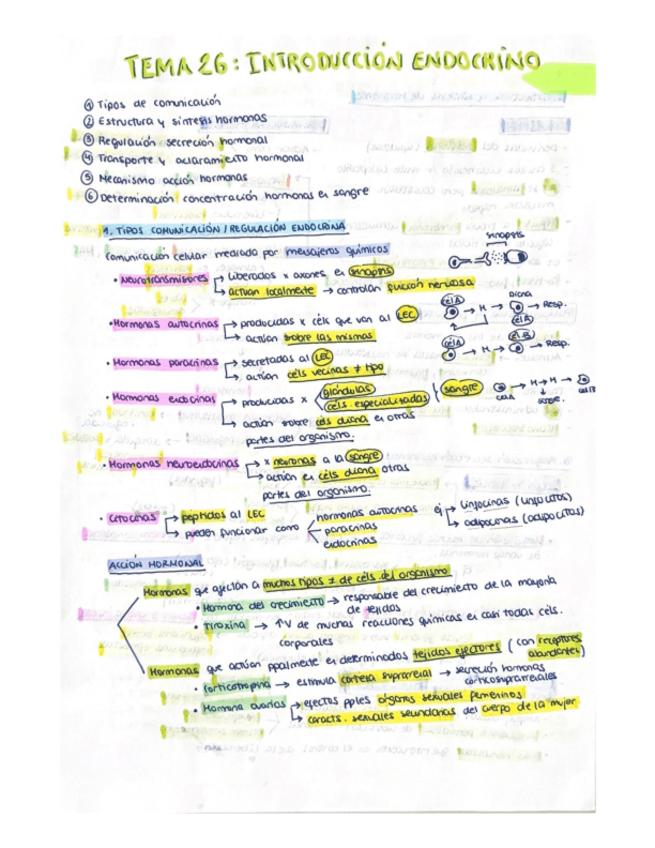 TEMA 26: INTRODUCCIÓN ENDOCRINO
① Tipos de comunicación
② Estructura y síntesis hormonas
③ Regulación secreción hormonal
④ Transporte y aclaramiento hormonal
⑤ Mecanismo acción hormonas
⑥ Determinación concentración hormonas en sangre
1. TIPOS COMUNICACIÓN / REGULACIÓN ENDOCRINA
Comunicación celular mediada por mensajeros químicos
sinapsis
• Neurotransmisores → liberados x axones en sinapsis
→ actúan localmente → controlan función nerviosa
• Hormonas autocrinas → producidas x céls que van al LEC
→ actúan sobre las mismas
célA → H → Diana → Resp.
célA
• Hormonas paracrinas → secretadas al LEC
→ actúan céls vecinas ≠ tipo
célA → H → cél B → Resp.
• Hormonas endocrinas → producidas x glándulas
céls. especializadas
sangre
célA H → H →
→ actúan sobre céls diana en otras
partes del organismo.
• Hormonas neuroendocrinas → x neuronas a la sangre
→ actúan en céls diana otras
partes del organismo.
• Citocinas → péptidos al LEC
→ pueden funcionar como hormonas autocrinas
paracrinas
endocrinas
ej → linfocinas (linfocitos)
→ adipocinas (adipocitos)
ACCIÓN HORMONAL
Hormonas que afectan a muchos tipos ≠ de céls del organismo
• Hormona del crecimiento → responsable del crecimiento de la mayoría
de tejidos
• Tiroxina → ↑V de muchas reacciones químicas en casi todas céls.
corporales
Hormonas que actúan ppalmente en determinados tejidos efectores (con receptores
abundantes)
• Corticotropina → estimula corteza suprarrenal → secreción hormonas
corticosuprarrenales
• Hormona ovarios → efectos pples órganos sexuales femeninos
→ caracts. sexuales secundarias del cuerpo de la mujer